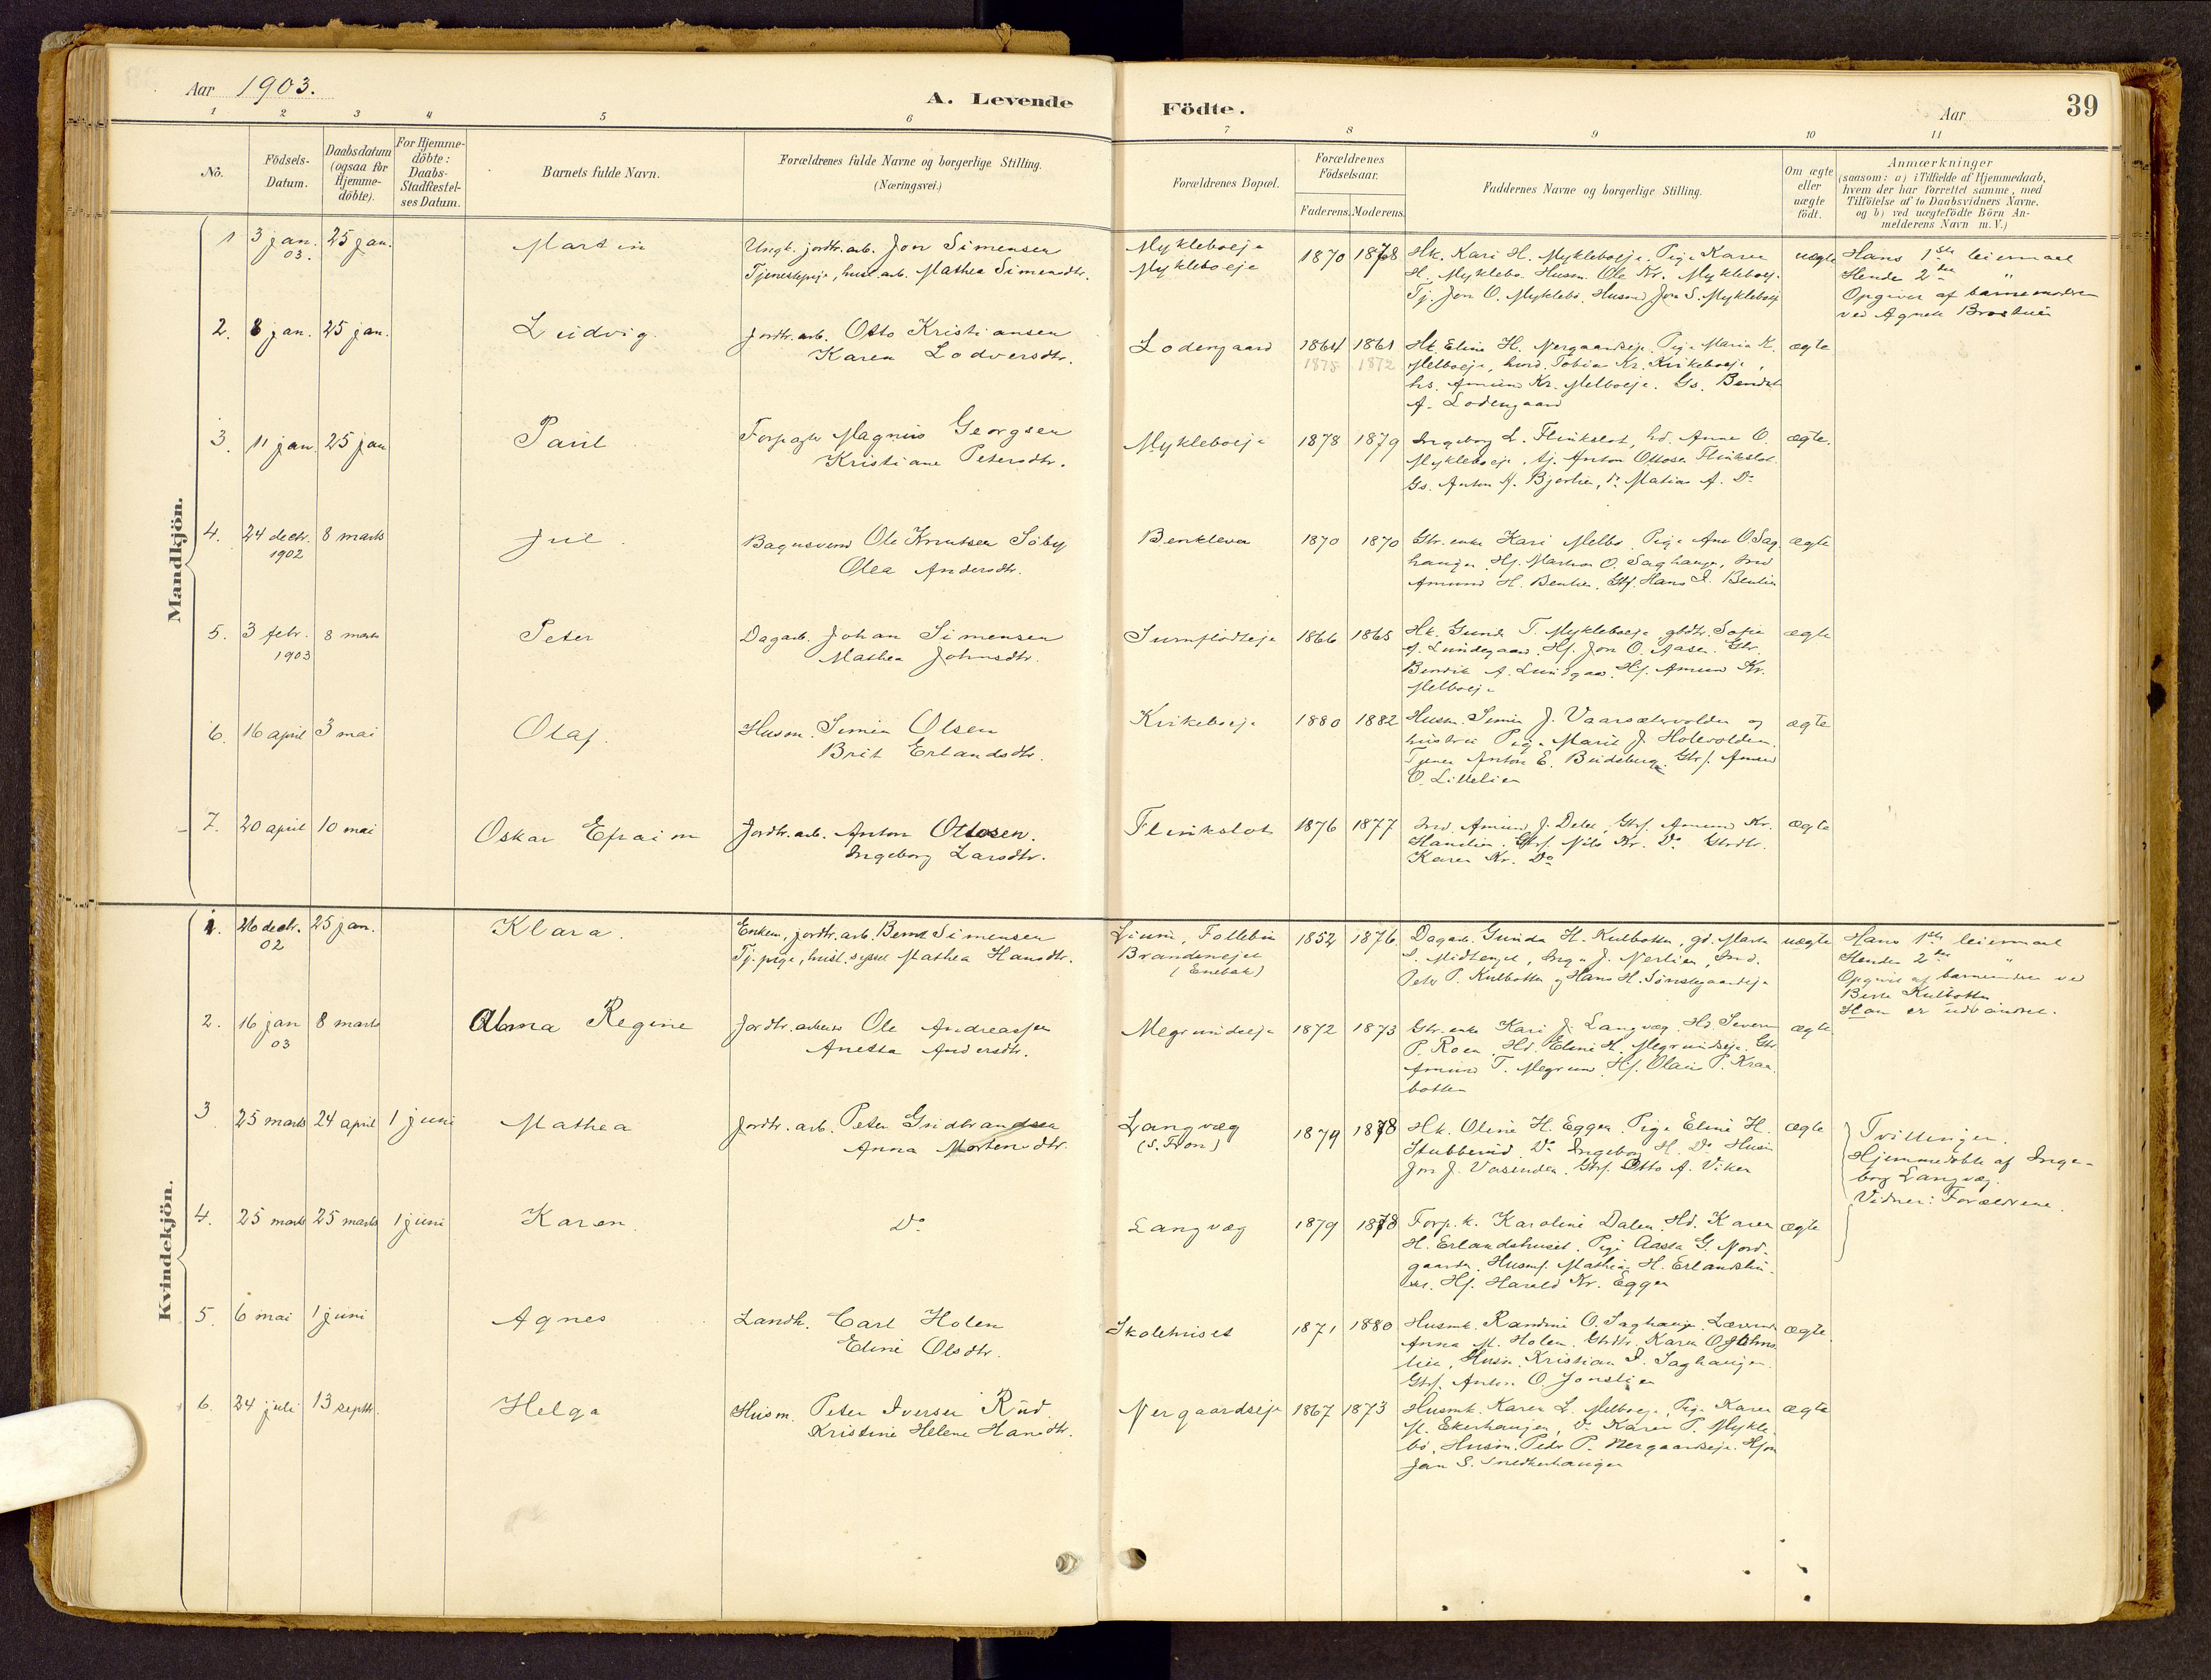 Aar 1903.
A. Levende Födte.
Aar
39
1 2 3 4 5 6 7 8 9 10 11
No.
Födsels-Datum.
Daabsdatum (ogsaa for Hjemme-döbte).
For Hjemme-döbte: Daabs-Stadfæstel-ses Datum.
Barnets fulde Navn.
Forældrenes fulde Navne og borgerlige Stilling. (Næringsvei.)
Forældrenes Bopæl.
Forældrenes Födselsaar.
Faderens. Moderens.
Faddernes Navne og borgerlige Stilling.
Om ægte eller uægte födt.
Anmærkninger
(saasom: a) i Tilfælde af Hjemmedaab,
hvem der har forrettet samme, med
Tilföielse af to Daabsvidners Navne.
og b) ved uægtefödte Börn An-
melderens Navn m.V.)
Mandkjön.
1 3 jan. 03. 25 jan. Martin
Ungk. jordbr. arb. Jon Simensen
Tjenestepige, husl. arb. Mathea Simensdtr.
Mykleboeje
Mykleboeje
1870 1878
Hk. Kari H. Mykleboeje. Pige Karen
H. Myklebo. Husm. Ole Kr. Mykleboej.
Tj. Jon O. Myklebo. Husmd Jon S. Mykleboej
uægte
Hans 1ste leiermaal
Hendes 2det "
Opgiver af barnemoderen
ved Agnete
2. 8 jan. 25 jan. Ludvig.
Jordbr. arb. Otto Kristiansen
Karen Lodversdtr.
Lodengaard
1864 1861
1875 1872
Hk Eline H. Nergaardseje. Pige Maria K.
Melboeje, Tobias Kr. Kirkeboeje,
hs. Amund Kr. Melboeje. Gs. Bendik
A. Lodengaard
ægte
3. 11 jan 25 jan Paul
Forpagter Magnus Georgsen
Kristiane Petersdtr.
Mykleboeje
1878 1879
Ingeborg L. Flinkslot, hd. Anne O.
Mykleboeje, tj. Anton Ottosen Flinkslot.
Gs. Anton A. Bjorlien, Do Matias A. Do
ægte.
4. 24 decbr. 1902 8 marts Jul.
Bagersvend Ole Knutsen Söby
Olea Andersdtr.
Benkleva
1870 1870
Gbr. enke Kari Melbo. Pige Ane O. Sag
haugen. Hf. Martin O. Saghauge,
Amund H. Benlien, Gbf. Hans I. Benlien
ægte
5. 3 febr. 1903 8 marts Peter
Dagarb. Johan Simensen
Mathea Johnsdtr.
1866 1865
Hk. Gunda T. Mykleboeje gbdtr. Sofie
A. Lundegaard. Hf. Jon O. Aasen. Gbr.
Bendik A. Lundgaa. Hf. Amund Kr.
Melboeje
ægte
6. 16 april 3 mai Olaf.
Husm. Simen Olsen
Brit Erlandsdtr.
Kirkeboeje
1880 1882
Husm. Simen J. Vaarsætervolden og
hustru Pige Marit J. Holevolden.
Tjener Anton E. Gbrf. Amund
O. Littelien
ægte
7. 20 april 10 mai Oskar Efraim
Jordbr. arb. Anton Ottosen.
Ingeborg Larsdtr.
Flinkslot
1876 1877
Amund J. Gbrf. Amund Kr.
Hanslien. Gbrf. Nils Kr. Do Gbrdtr.
Karen Kr. Do
ægte
Kvindekjön.
1. 26 decbr. 02 25 jan. Klara.
Enkem. jordbr. arb. Bernt Simensen
Tj. pige, husl. syssel Mathea Hansdtr.
Lium, Follebu
Brandenejet
(Enebak)
1852 1876
Dagarb. Gunda H. Kulbotten, gd. Marte
Midtenget, Inga J. Nerlien,
Peter P. Kulbotten og Hans H. Sönstegaardseje
uægte
Hans 1ste leiermaal
Hendes 2det "
Opgivet af barnemoderen ved
Berte Kulbotten
Han er udvandret.
2. 16 jan 03 8 marts Alma Regine
Jordbr. arbeider Ole Andreassen
Anetta Andersdtr.
Megrundseje
1872 1873
Gbr. enke Kari J. Langvæg. Hd. Severin
P. Roen. Hd. Eline H. Megrundseje. Gbr
Amund T. Megrund. Hf. Olaus P. Kraa-
botten
ægte
3 25 marts 24 april 1 juni Mathea
Jordbr. arb. Peter Gudbrandsen
Anna Mortensdtr.
Langvæg
(S. Fron)
1879 1878
Hk. Oline H. Eggen. Pige Eline H.
Stubberud. Do Ingeborg H. Do Husm
Jon J. Vasenden. Gbrf. Otto A. Viken
ægte
Tvillinger.
Hjemmedöbte af Inge-
borg Langvæg.
Vidner: Forældrene.
4. 25 marts 25 marts 1 juni Karen.
Do
Langvæg
1879 1878
Forp.k. Karoline Dalen. Hd. Karen
H. Erlandshuset. Pige Aasta G. Nord-
gaarden. Husmf. Mathias H. Erlandshu-
set. Hf. Harald Kr. Eggen
ægte
5. 6 mai 1 juni Agnes
Landh. Carl Holen
Eline Olsdtr.
Skolehuset
1871 1880
Husmk. Randine O. Saghauge. Lærerinde
Anna M. Holen. Gbrdtr. Karen O. Johns
lien, Husm. Kristian I. Saghaugen.
Gbrf. Anton O. Jonslien
ægte
6. 24 juli 13 septbr. Helga
Husm. Peter Iversen Rud
Kristine Helene Hansdtr.
Nergaardseje
1867 1873
Husmk. Karen L. Melboeje, Pige Karen
M. Ekerhaugen, Do Karen P. Mykle-
bö, Husm. Peder P. Nergaardseje. Hf
Jon S. Snedkerhaugen
ægte